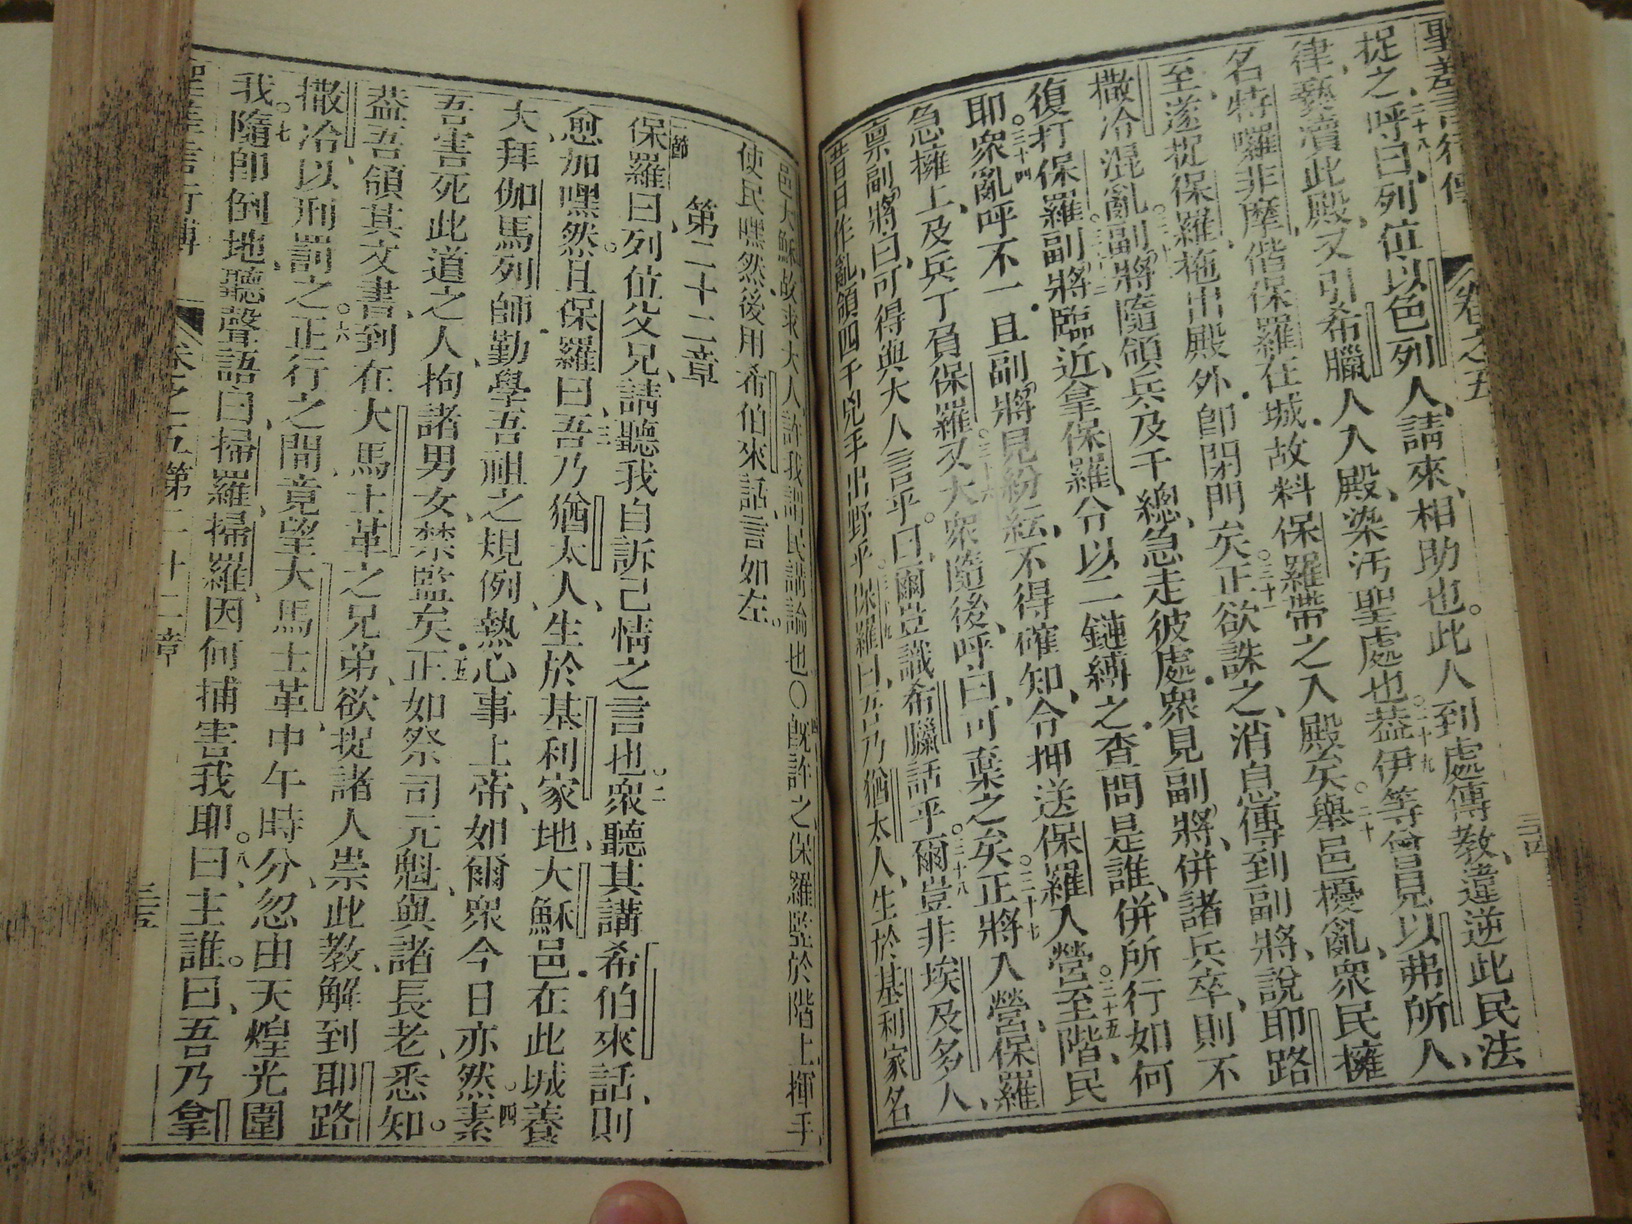 聖差言行傳 卷之五
捉之、三十八呼曰列位以色列人、請來、相助也。此人到處傳教、違逆此民法
律、褻瀆此殿、又引希臘人入殿、染污聖處也。三十九蓋伊等曾見以弗所人、
名特囉非摩、偕保羅在城、故料保羅帶之入殿矣。三十舉邑擾亂、衆民擁
至、遂捉保羅、拖出殿外、即閉門矣。三十一正欲誅之、消息傳到副將、說耶路
撒冷混亂。副將隨領兵及千總、急走彼處、衆見副將、併諸兵卒、則不
復打保羅。副將臨近、拿保羅、令以二鏈縛之、查問是誰、併所行如何
耶。三十四衆亂呼不一、且副將見紛紜、不得確知、令押送保羅入營。三十五至階、民
急擁上、及兵丁負保羅、又大衆隨後、呼曰、可棄之矣。三十七正將入營、保羅
禀副將曰、可得與大人言乎。曰、爾豈識希臘話乎。三十八爾豈非埃及多人、
昔日作亂、領四千兇手出野乎。保羅曰、吾乃猶太人、生於基利家名
邑大穌、故求大人許我與民講論也。〇既許之、保羅竪於階上、揮手
使民嘿然、後用希伯來話、言如左。
第二十二章
節保羅曰、列位父兄、請聽我自訴己情之言也。二衆聽其講希伯來話、則
愈加嘿然。且保羅曰、三吾乃猶太人、生於基利家地、大穌邑、在此城養
大、拜伽馬列師、勤學吾祖之規例、熱心事上帝、如爾衆今日亦然。四素
吾害死此道之人、拘諸男女、禁監矣。五正如祭司元魁、與諸長老、悉知。
蓋吾領其文書、到在大馬士革之兄弟、欲捉諸人祟此教、解到耶路
撒冷、以刑罰之。六正行之間、竟望大馬士革、中午時分、忽由天煌光圍
我。七我隨即倒地、聽聲語曰、掃羅、掃羅、因何捕害我耶。八曰、主誰。曰、吾乃拿
聖差言行傳 卷之五第二十二章 三五